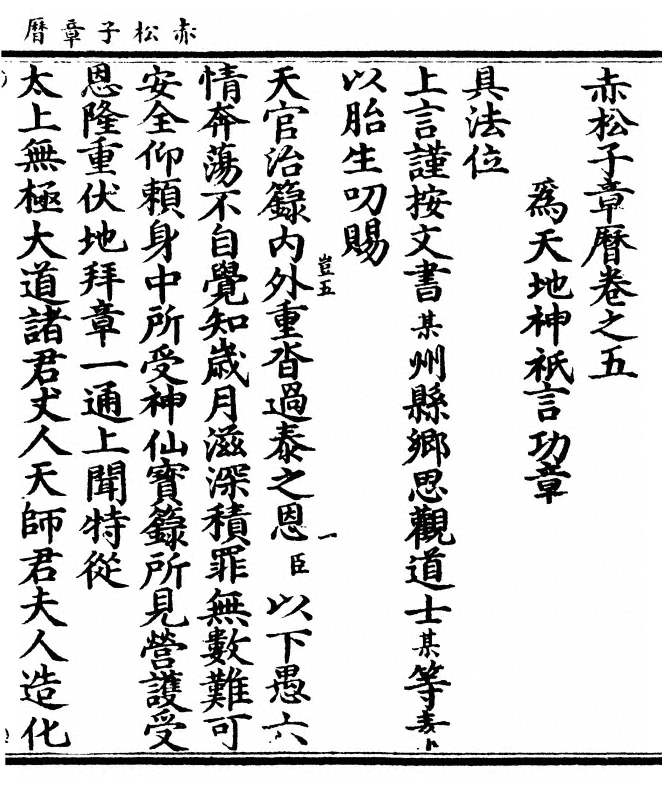 赤松子章曆
赤松子章曆卷之五
為天地神祇言功章
具法位
上言謹按文書某州縣鄉思觀道士某等
以胎生叨賜
天官治籙內外重沓過泰之恩臣以下愚六
豈五
一
情奔蕩不自覺知歲月滋深積罪無數難可
安全仰賴身中所受神仙寶籙所見營護受
恩隆重伏地拜章一通上聞特從
太上無極大道諸君丈人天師君夫人造化